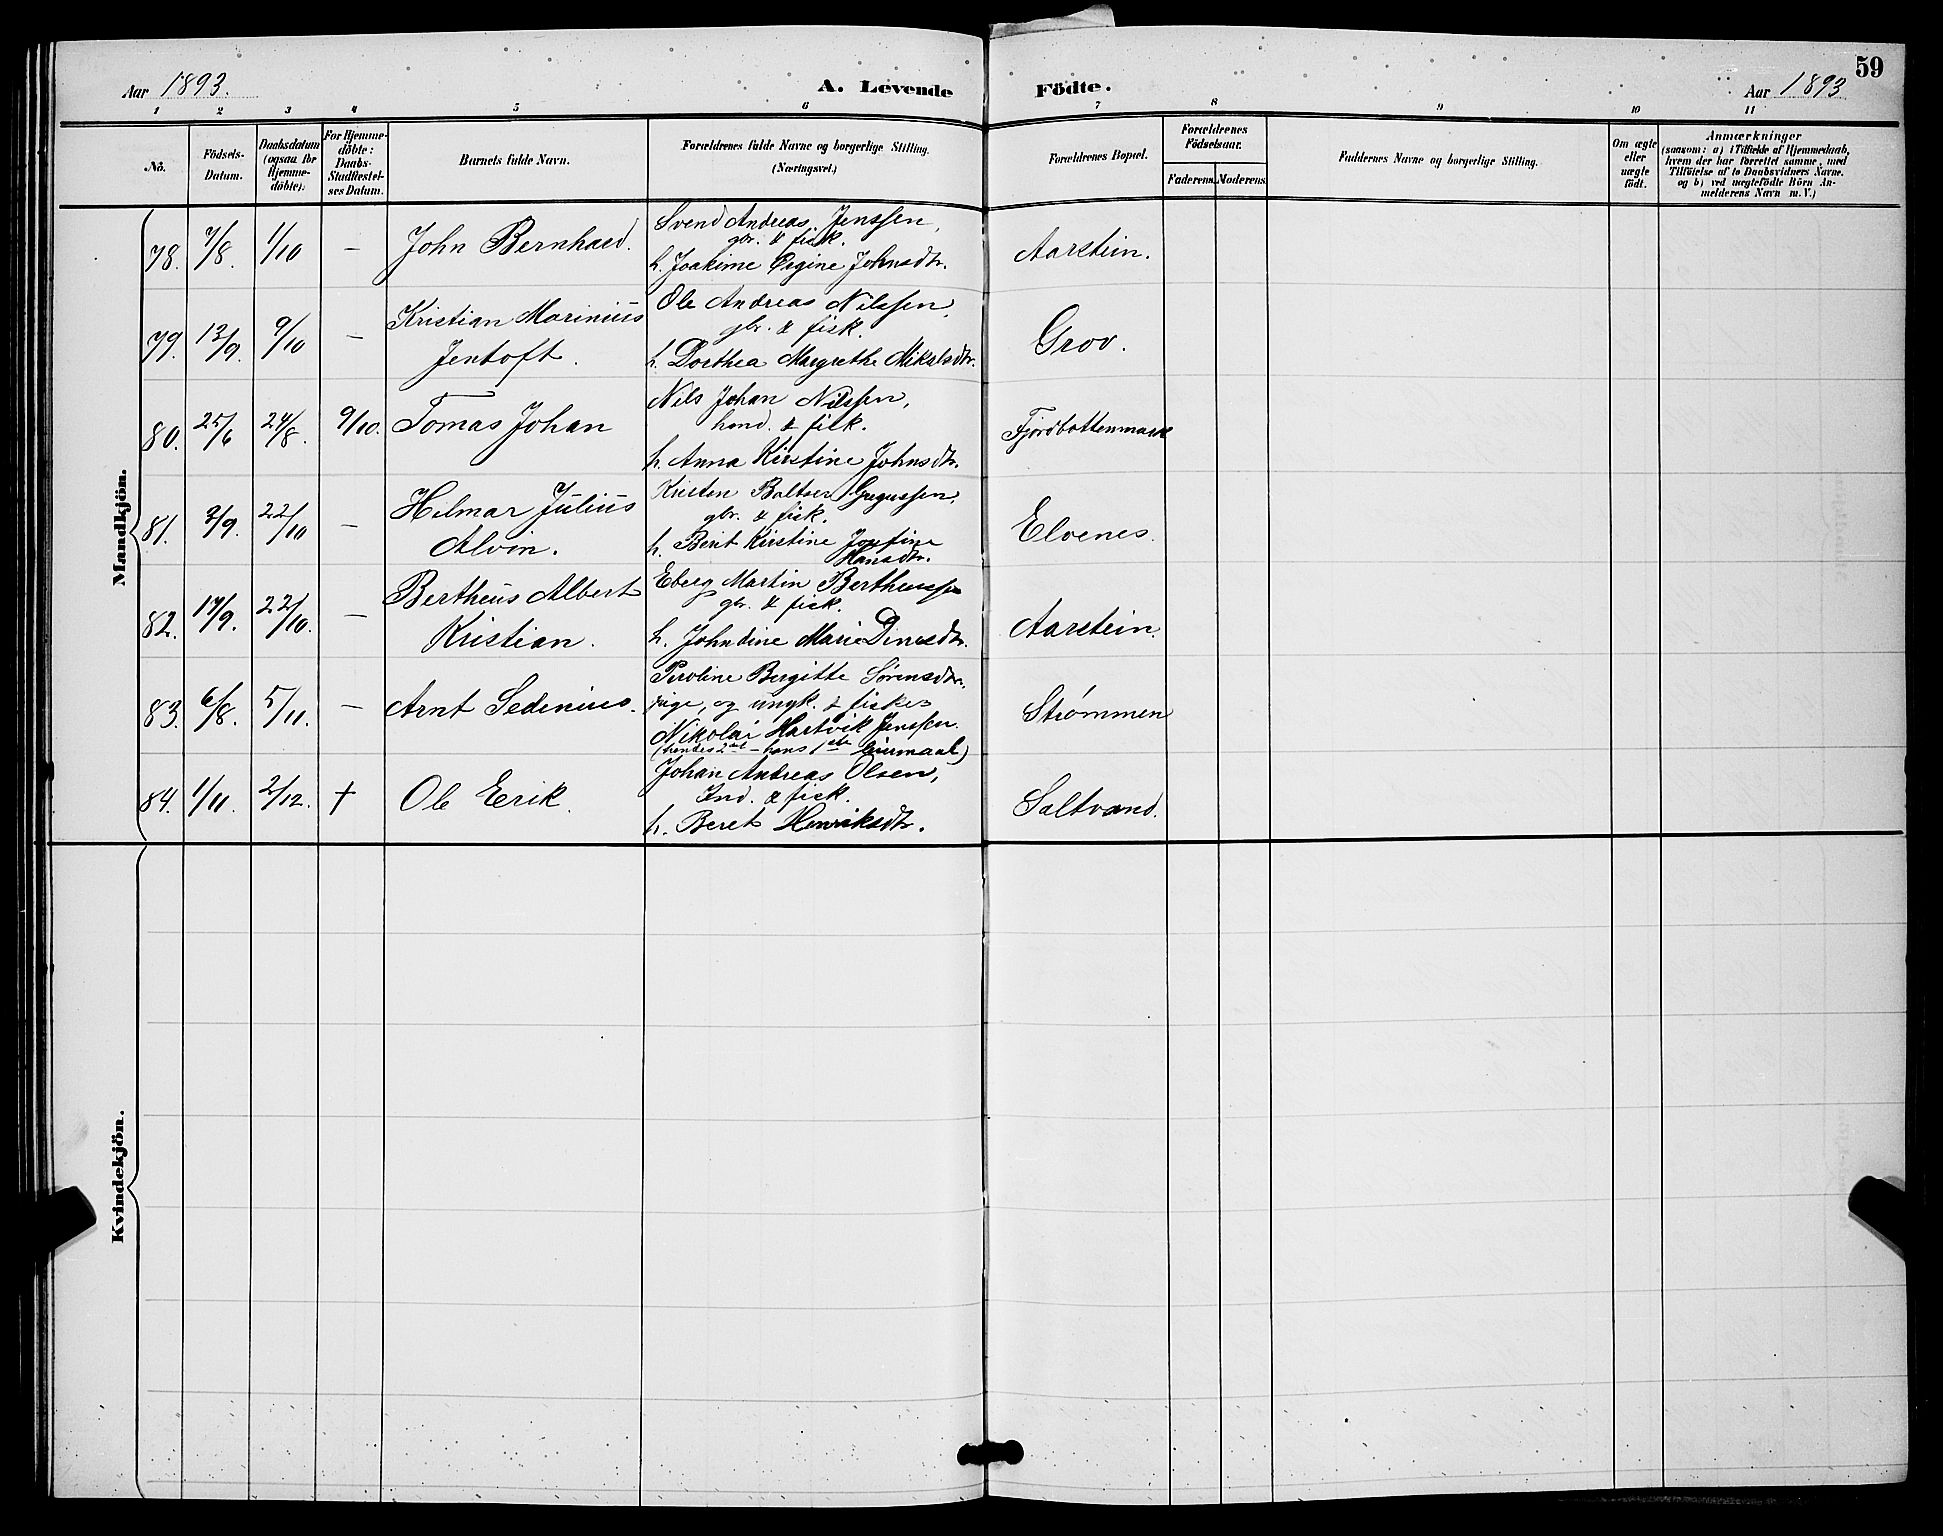 59
Aar 1893.
A. Levende Födte.
Aar 1893
1 2 3 4 5 6 7 8 9 10 11
No.
Födsels-Datum.
Daabsdatum (ogsaa for Hjemme-döbte).
For Hjemme-döbte: Daabs-Stadfæstel-ses Datum.
Barnets fulde Navn.
Forældrenes fulde Navne og borgerlige Stilling.
(Næringsvei.)
Forældrenes Bopæl.
Forældrenes Födselsaar.
Faderens. Moderens.
Faddernes Navne og borgerlige Stilling.
Om ægte eller uægte födt.
Anmærkninger
(saasom: a) i Tilfælde af Hjemmedaab,
hvem der har forrettet samme, med
Tilföielse af to Daabsvidners Navne,
og b) ved uægtefödte Börn An-
melderens Navn m. V.)
Mandkjön.
78. 7/8. 1/10 — John Bernhard.
Svend Andreas Jenssen,
gbr. & fisk.
h. Joakime Ørgine Johnsdtr.
Aarstein.
79. 12/9. 9/10 — Kristian Marinius
Jentoft.
Ole Andreas Nilssen,
gbr. & fisk.
h. Dorthea Margrethe Mikalsdtr.
Grov.
80. 25/6 24/8. 9/10. Tomas Johan
Nils Johan Nilssen,
hand. & fisk.
h. Anna Kirstine Johnsdtr.
Fjordbottenmark
81. 3/9. 22/10 — Hilmar Julius
Alvin.
Kristen Baltser Gregussen,
gbr. & fisk.
h. Berit Kirstine Josefine
Hansdtr.
Elvenes.
82. 17/9. 22/10. — Bertheus Albert
Kristian.
Eberg Martin Bertheussen
gbr. & fisk.
h. Johndine Marie Dinesdtr.
Aarstein.
83. 6/8. 5/11. — Arnt Sedenius.
Peroline Bergitte Sørensdtr.,
pige, og ungk. & fisker
Nikolai Hartvik Jenssen
(hendes 2det – hans 1ste leiermaal)
Strømmen
84. 1/11. 2/12. † Ole Eerik.
Johan Andreas Olsen,
Ind. & fisk.
h. Beret Henriksdtr.
Saltvand.
Kvindekjön.